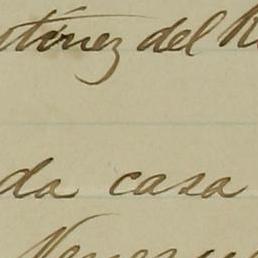 tínez del R
da casa